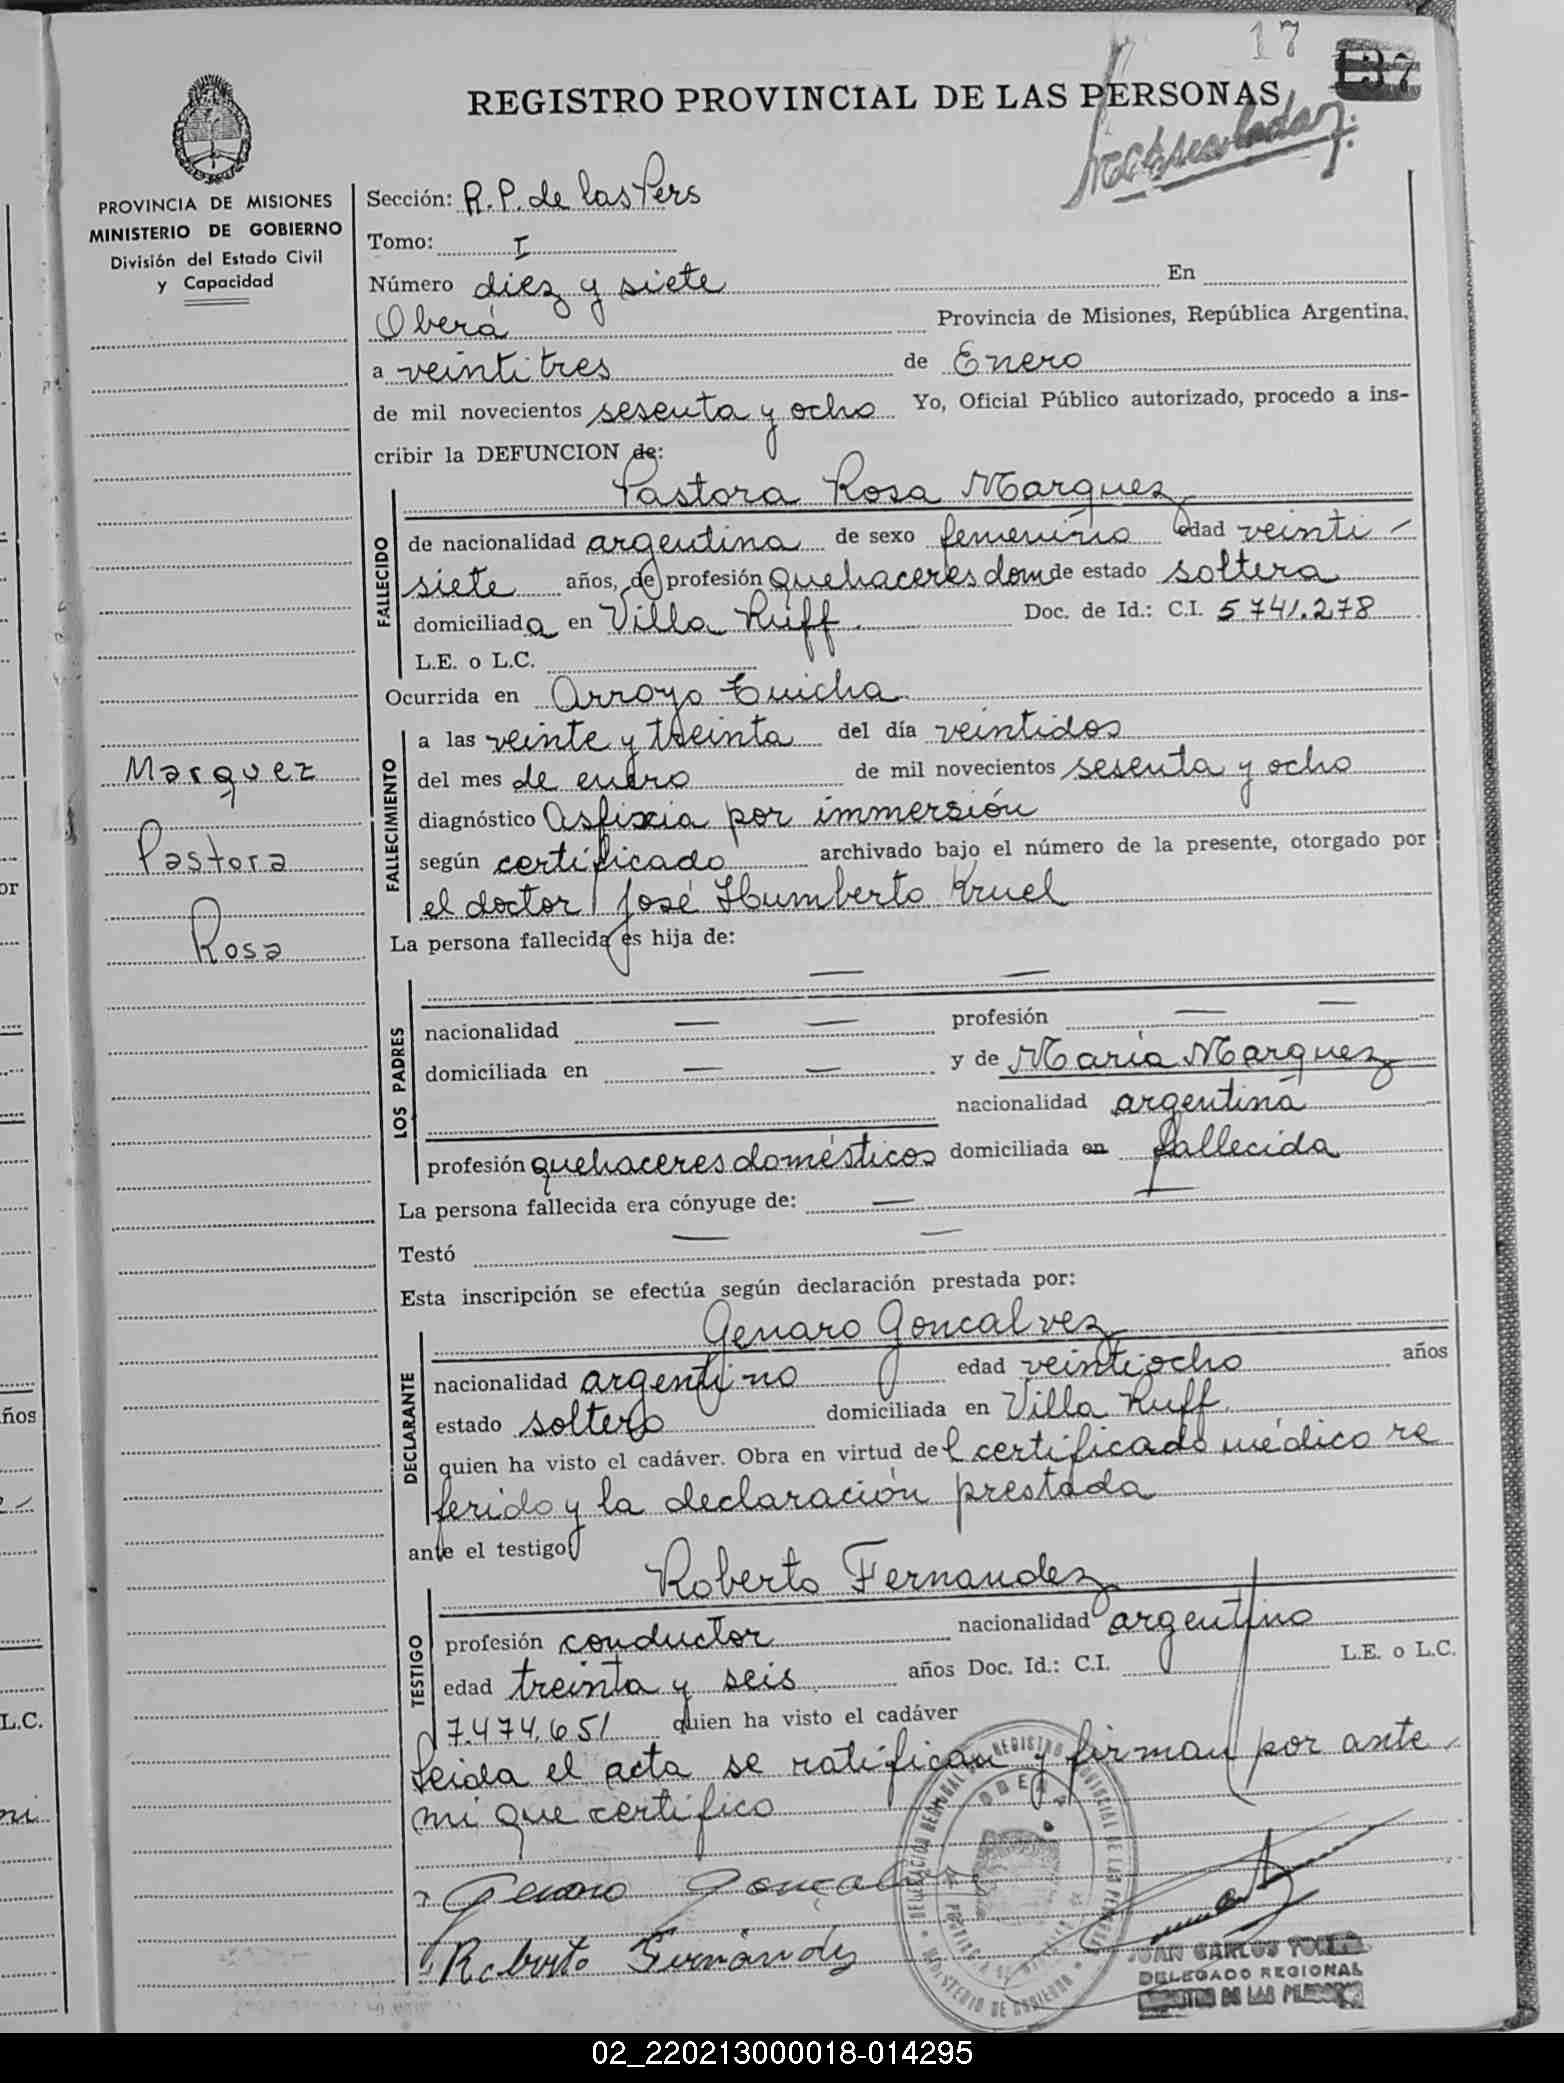 17
137
REGISTRO PROVINCIAL DE LAS PERSONAS
PROVINCIA DE MISIONES
MINISTERIO DE GOBIERNO
División del Estado Civil
y Capacidad
Sección: R.P. de las Pers
Tomo: I
Número diez y siete En
Oberá Provincia de Misiones, República Argentina,
a veintitres de Enero
de mil novecientos sesenta y ocho Yo, Oficial Público autorizado, procedo a ins-
cribir la DEFUNCION de:
Pastora Rosa Marquez
FALLECIDO
de nacionalidad argentina de sexo femenino edad veinti-
siete años, de profesión quehaceres dom de estado soltera
domiciliada en Villa Ruff. Doc. de Id.: C.I. 5.741.278
L.E. o L.C.
Ocurrida en Arroyo Tuicha
FALLECIMIENTO
a las veinte y treinta del día veintidos
del mes de enero de mil novecientos sesenta y ocho
Marquez
diagnóstico Asfixia por immersión
Pastora
según certificado archivado bajo el número de la presente, otorgado por
el doctor José Humberto Kruel
Rosa
La persona fallecida es hija de:
— —
LOS PADRES
nacionalidad — — profesión — —
domiciliada en — — y de María Marquez
nacionalidad argentina
profesión quehaceres domésticos domiciliada en fallecida
La persona fallecida era cónyuge de: —
Testó — —
Esta inscripción se efectúa según declaración prestada por:
Genaro Goncalvez
DECLARANTE
nacionalidad argentino edad veintiocho años
estado soltero domiciliada en Villa Ruff.
quien ha visto el cadáver. Obra en virtud del certificado médico re
ferido y la declaración prestada
ante el testigo
Roberto Fernandez
TESTIGO
profesión conductor nacionalidad argentino
edad treinta y seis años Doc. Id.: C.I. L.E. o L.C.
7.474.651 quien ha visto el cadáver
Leida el acta se ratifican y firman por ante
mi que certifico
Genaro Goncalvez
Roberto Fernández
DELEGACION REGIONAL REGISTRO PROVINCIAL DE LAS PERSONAS
MINISTERIO DE GOBIERNO
JUAN CARLOS
DELEGADO REGIONAL
REGISTRO DE LAS PERSONAS
or
años
L.C.
mi
02_220213000018-014295